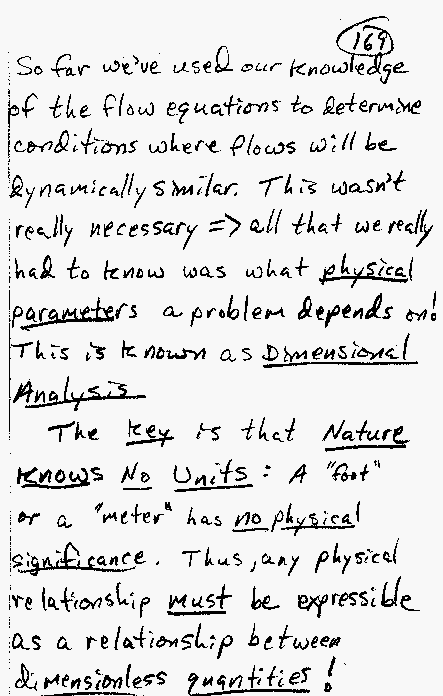 169
So far we've used our knowledge
of the flow equations to determine
conditions where flows will be
dynamically similar. This wasn't
really necessary => all that we really
had to know was what physical
parameters a problem depends on!
This is known as Dimensional
Analysis
The key is that Nature
Knows No Units: A "foot"
or a "meter" has no physical
significance. Thus, any physical
relationship must be expressible
as a relationship between
dimensionless quantities!